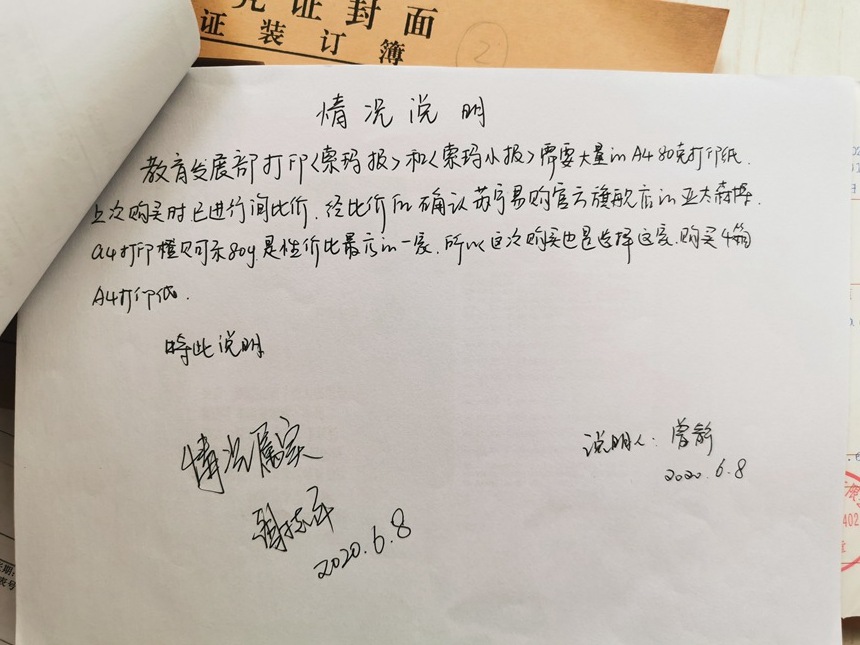 证封面
证装订簿
2
情况说明
教育发展部打印《索玛报》和《索玛小报》需要大量的A4 80克打印纸.
上次购买时已进行询比价.经比价后确认苏宁易购官方旗舰店的亚太森博.
A4打印橙贝可乐80g是性价比最高的一家.所以这次购买也是选择这家.购买4箱
A4打印纸.
特此说明
情况属实
说明人:曾静
2020.6.8
2020.6.8
402